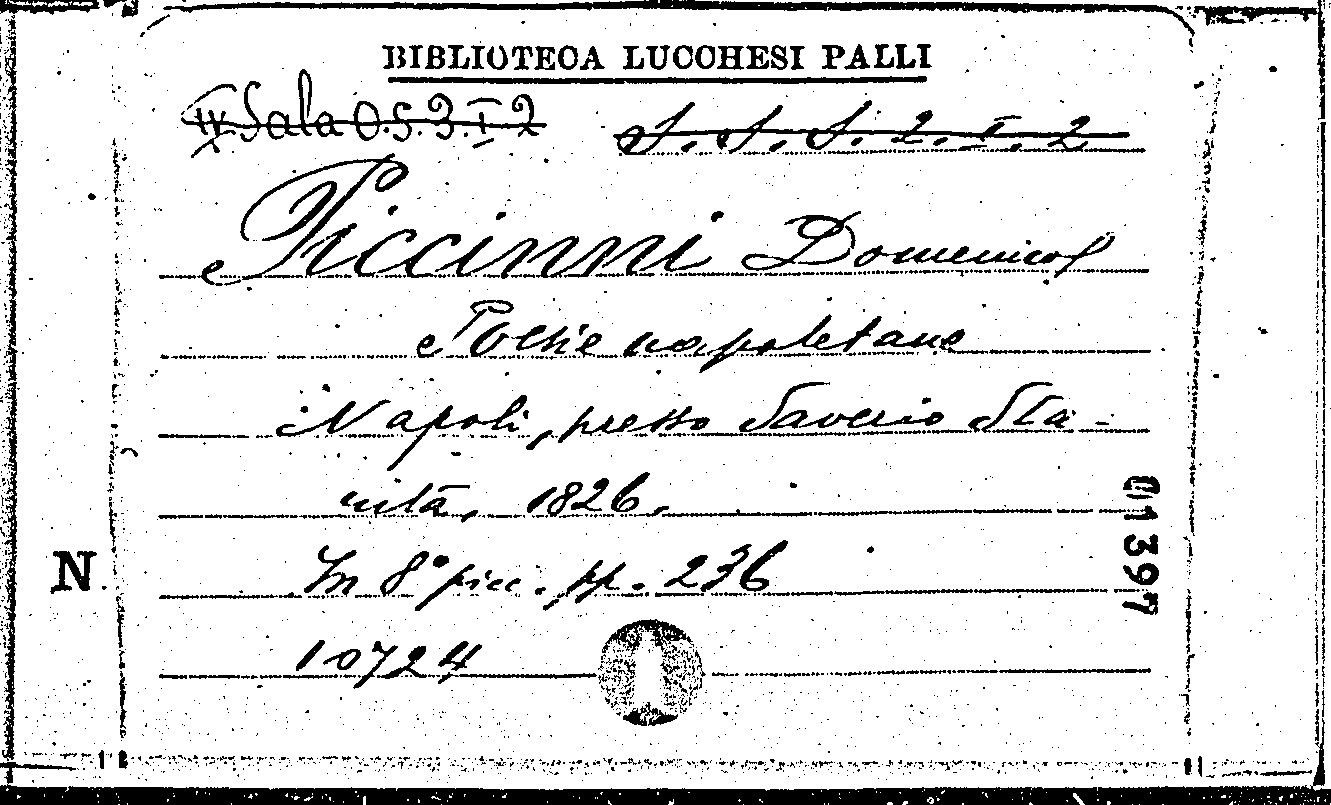 BIBLIOTECA LUCCHESI PALLI
IV Sala O.S.3.I 2 S. S. S. 2. I. 2
Piccinni Domenico
Poesie napoletane
Napoli, presso Saverio Sta-
rita, 1826.
In 8° picc. pp. 236
10724
N
01397